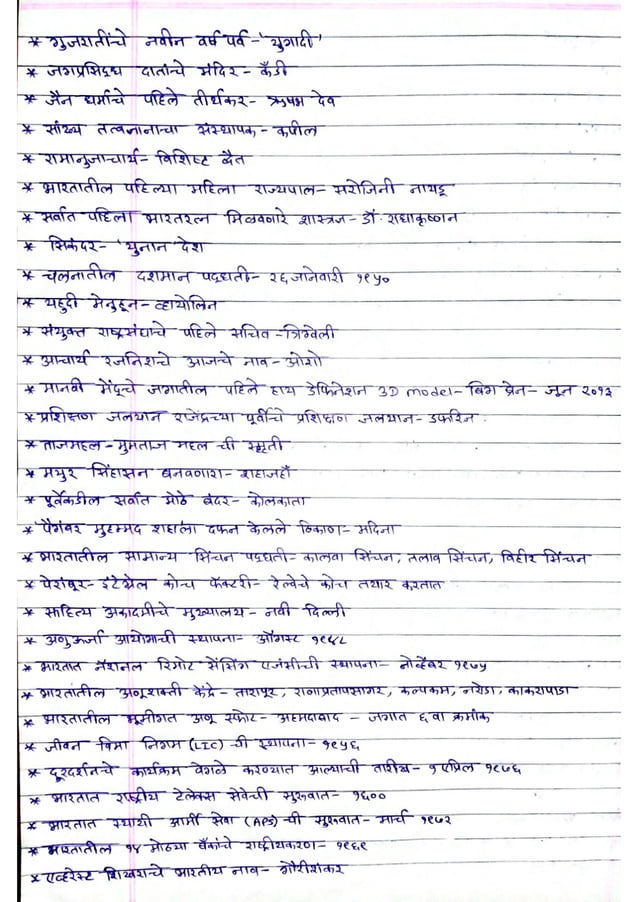 * गुजरातींचे नवीन वर्ष पर्व - 'युगादी'
* जगप्रसिद्ध दातांचे मंदिर - कँडी
* जैन धर्माचे पहिले तीर्थकर - ऋषभ देव
* सांख्य तत्वज्ञानाचा संस्थापक - कपील
* रामानुजाचार्य - विशिष्ट द्वैत
* भारतातील पहिल्या महिला राज्यपाल - सरोजिनी नायडू
* सर्वात पहिला भारतरत्न मिळवणारे शास्त्रज्ञ - डॉ. राधाकृष्णन
* सिकंदर - 'युनान देश
* चलनातील दशमान पद्धती - २६ जानेवारी १९५०
* यहुदी मेनुहून - व्हायोलिन
* संयुक्त राष्ट्रसंघाचे पहिले सचिव - त्रिग्वेली
* आचार्य रजनिशचे आजचे नाव - ओशो
* मानवी मेंदूचे जगातील पहिले हाय डेफिनेशन 3D model - बिग ब्रेन - जून २०१३
* प्रशिक्षण जलयान राजेंद्रच्या पूर्वीचे प्रशिक्षण जलयान - डफरिन
* ताजमहल - मुमताज महल ची स्मृती
* मयुर सिंहासन बनवणारा - शहाजहाँ
* पूर्वेकडील सर्वात मोठे बंदर - कोलकाता
* पैगंबर मुहम्मद शहाला दफन केलले ठिकाण - मदिना
* भारतातील सामान्य सिंचन पद्धती - कालवा सिंचन, तलाव सिंचन, विहीर सिंचन
* पेरांबूर - इंटेग्रेल कोच फॅक्टरी - रेल्वेचे कोच तयार करतात
* साहित्य अकादमीचे मुख्यालय - नवी दिल्ली
* अणुऊर्जा आयोगाची स्थापना - ऑगस्ट १९४८
* भारतात नॅशनल रिमोट सेंसिंग एजंसीची स्थापना - नोव्हेंबर १९७५
* भारतांतील अणूशक्ती केंद्रे - तारापूर, राणाप्रतापसागर, कल्पकम, नरोडा, काकरापाडा
* भारतातील भूमीगत अणू स्फोट - अहमदाबाद - जगात ६ वा क्रमांक
* जीवन विमा निगम (LIC) ची स्थापना - १९५६
* दूरदर्शनचे कार्यक्रम वेगळे करण्यात आल्याची तारीख - १ एप्रिल १९७६
* भारतात राष्ट्रीय टेलेक्स सेवेची सुरुवात - १६००
* भारतात स्थायी आर्मी सेवा (APS) ची सुरुवात - मार्च १९७२
* भारतातील १४ मोठ्या बँकांचे राष्ट्रीयकरण - १९६९
* एव्हरेस्ट शिखराचे भारतीय नाव - गौरीशंकर